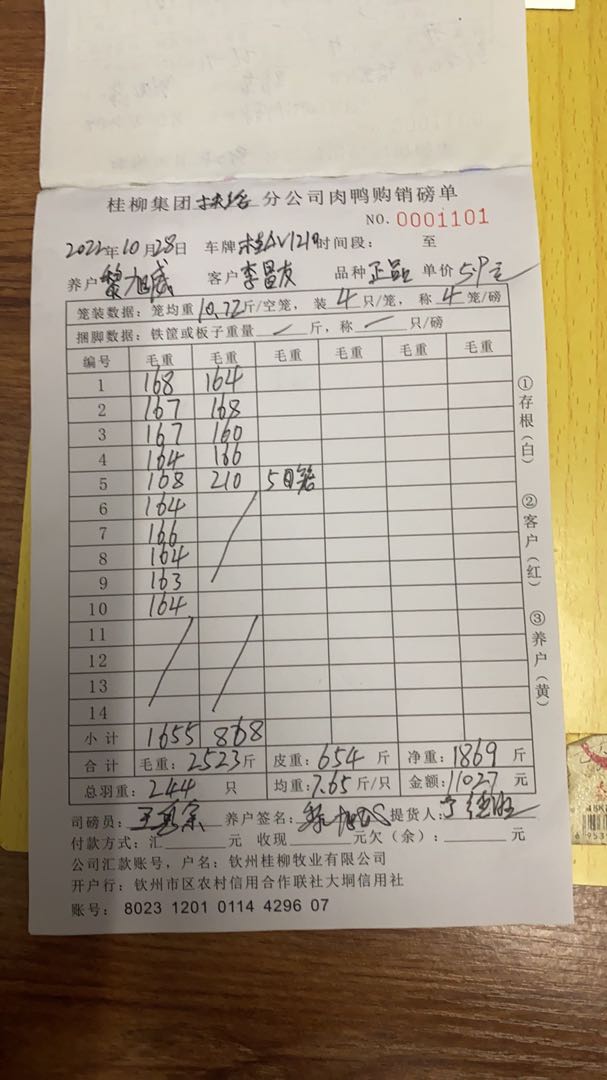 桂柳集团扶绥分公司肉鸭购销磅单
NO. 0001101
2022年10月28日 车牌桂AV1219时间段: 至
养户黎旭盛 客户李昌友 品种正品 单价5.9元
笼装数据: 笼均重10.22斤/空笼, 装4只/笼, 称4笼/磅
捆脚数据: 铁筐或板子重量 / 斤, 称 / 只/磅
编号 毛重 毛重 毛重 毛重 毛重 毛重
1 168 164
2 167 168
3 167 160
4 164 166
5 168 210 5只笼
6 164
7 166
8 164
9 163
10 164
11
12
13
14
小计 1655 868
合计 毛重: 2523斤 皮重: 654斤 净重: 1869斤
总羽重: 244只 均重: 7.65斤/只 金额: 11027元
司磅员: 养户签名: 提货人:
付款方式: 汇 元 收现 元欠(余): 元
公司汇款账号, 户名: 钦州桂柳牧业有限公司
开户行: 钦州市区农村信用合作联社大垌信用社
账号: 8023 1201 0114 4296 07
①存根(白)
②客户(红)
③养户(黄)